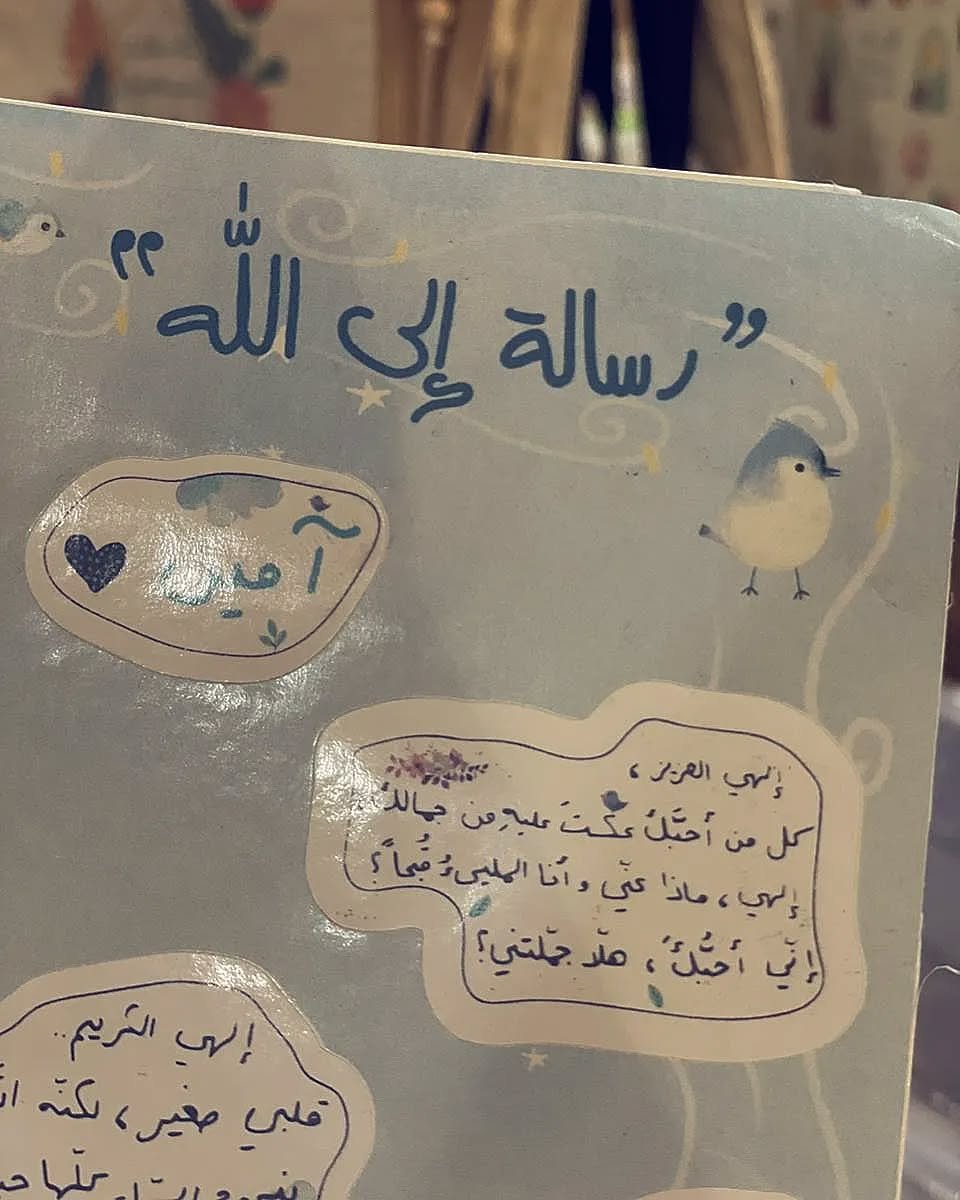 "رسالة إلى اللّٰه"
آمين
إلهي العزيز،
كل من أحبَّكَ عكستَ عليهِ من جمالكَ
إلهي، ماذا عنّي وأنا المليىءُ قُبحاً؟
إنّي أحبُّكَ، هلّا جمّلتني؟
إلهي الكريم..
قلبي صغير، لكنّه